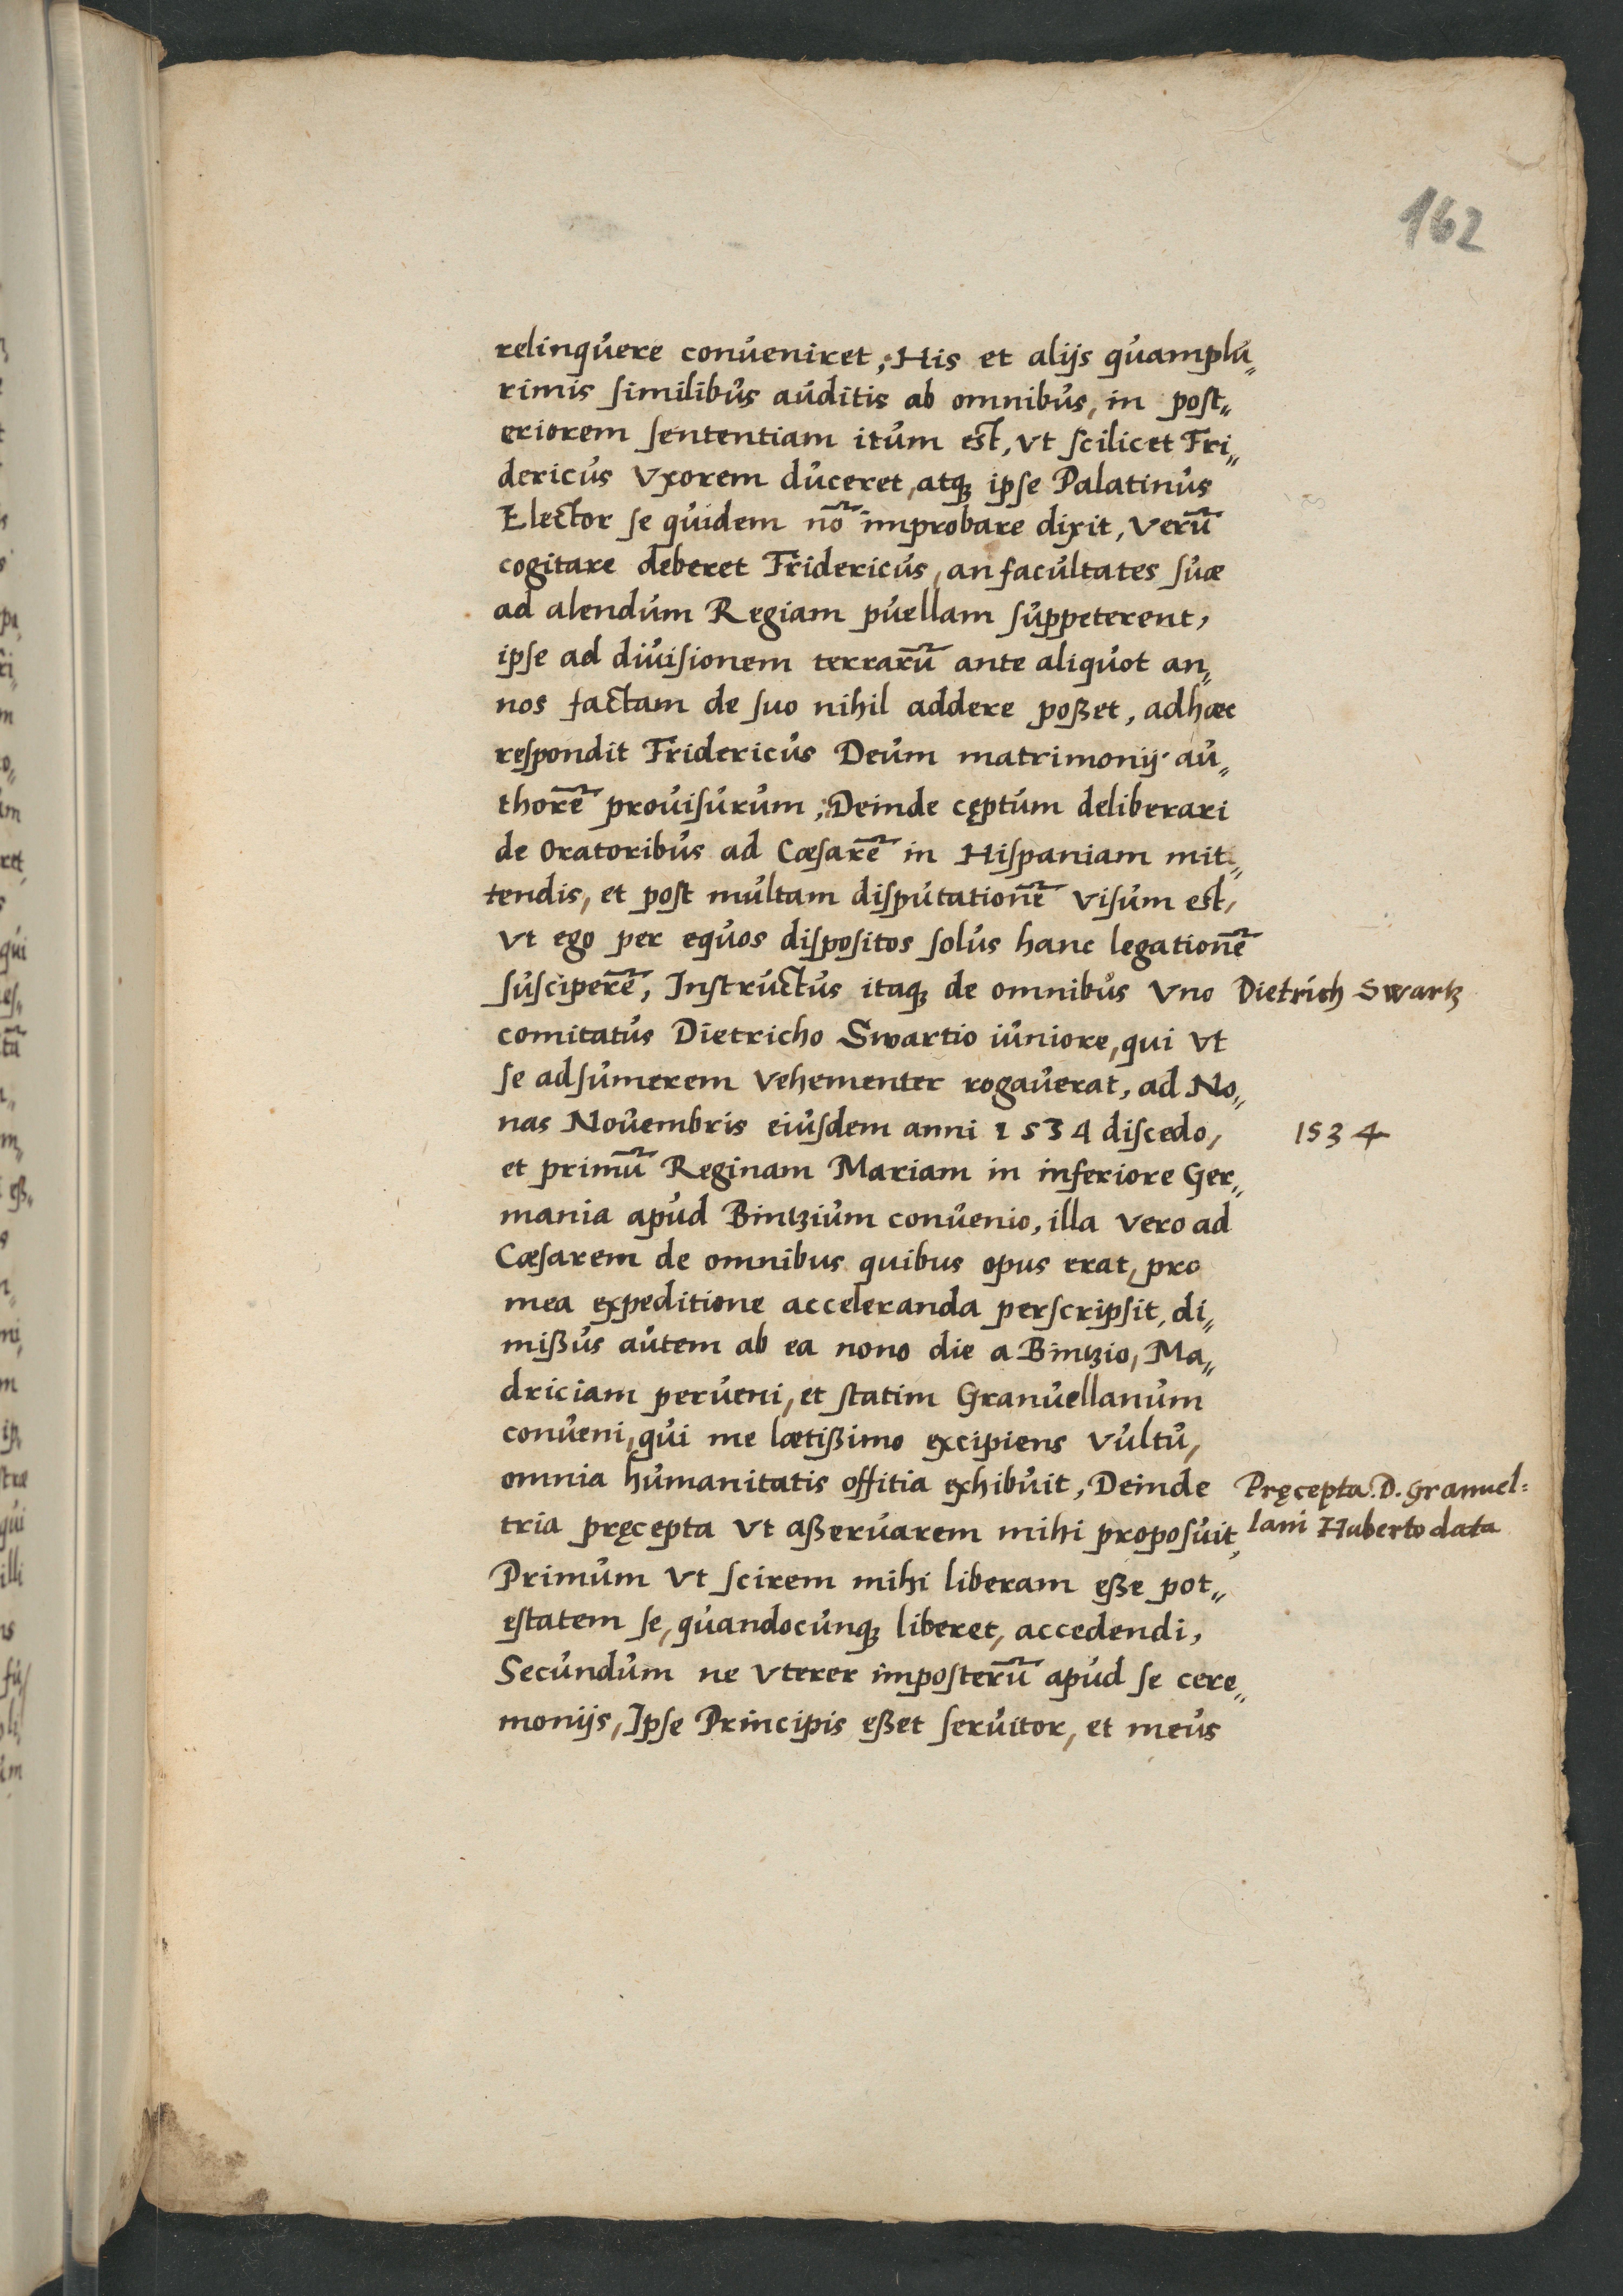 162
relinquere conueniret, His et alijs quamplu„
rimis similibus auditis ab omnibus, in post„
eriorem sententiam itum est, vt scilicet Fri„
dericus vxorem duceret, atq₃ ipse Palatinus
Elector se quidem nõ improbare dixit, verũ
cogitare deberet Fridericus, an facultates suæ
ad alendum Regiam puellam suppeterent,
ipse ad diuisionem terrarũ ante aliquot an„
nos factam de suo nihil addere poßet, adhæc
respondit Fridericus Deum matrimonij au„
thorẽ prouisurum, Deinde cęptum deliberari
de Oratoribus ad Cæsarẽ in Hispaniam mit„
tendis, et post multam disputationẽ visum est,
vt ego per equos dispositos solus hanc legationẽ
susciperẽ, Instructus itaq₃ de omnibus vno Dietrich Swartz
comitatus Dietricho Swartio iuniore, qui vt
se adsumerem vehementer rogauerat, ad No„
nas Nouembris eiusdem anni 1534 discedo, 1534
et primũ Reginam Mariam in inferiore Ger„
mania apud Bintzium conuenio, illa vero ad
Cæsarem de omnibus quibus opus erat, pro
mea expeditione acceleranda perscripsit, di„
mißus autem ab ea nono die a Bintzio, Ma„
driciam perueni, et statim Granuellanum
conueni, qui me lætißimo excipiens vultu,
omnia humanitatis offitia exhibuit, Deinde Pręcepta D. Granuel:
tria pręcepta vt aßeruarem mihi proposuit, lani Huberto data
Primum vt scirem mihi liberam eße pot„
estatem se, quandocunq₃ liberet, accedendi,
Secundum ne vterer imposterũ apud se cere„
monijs, Ipse Principis eßet seruitor, et meus